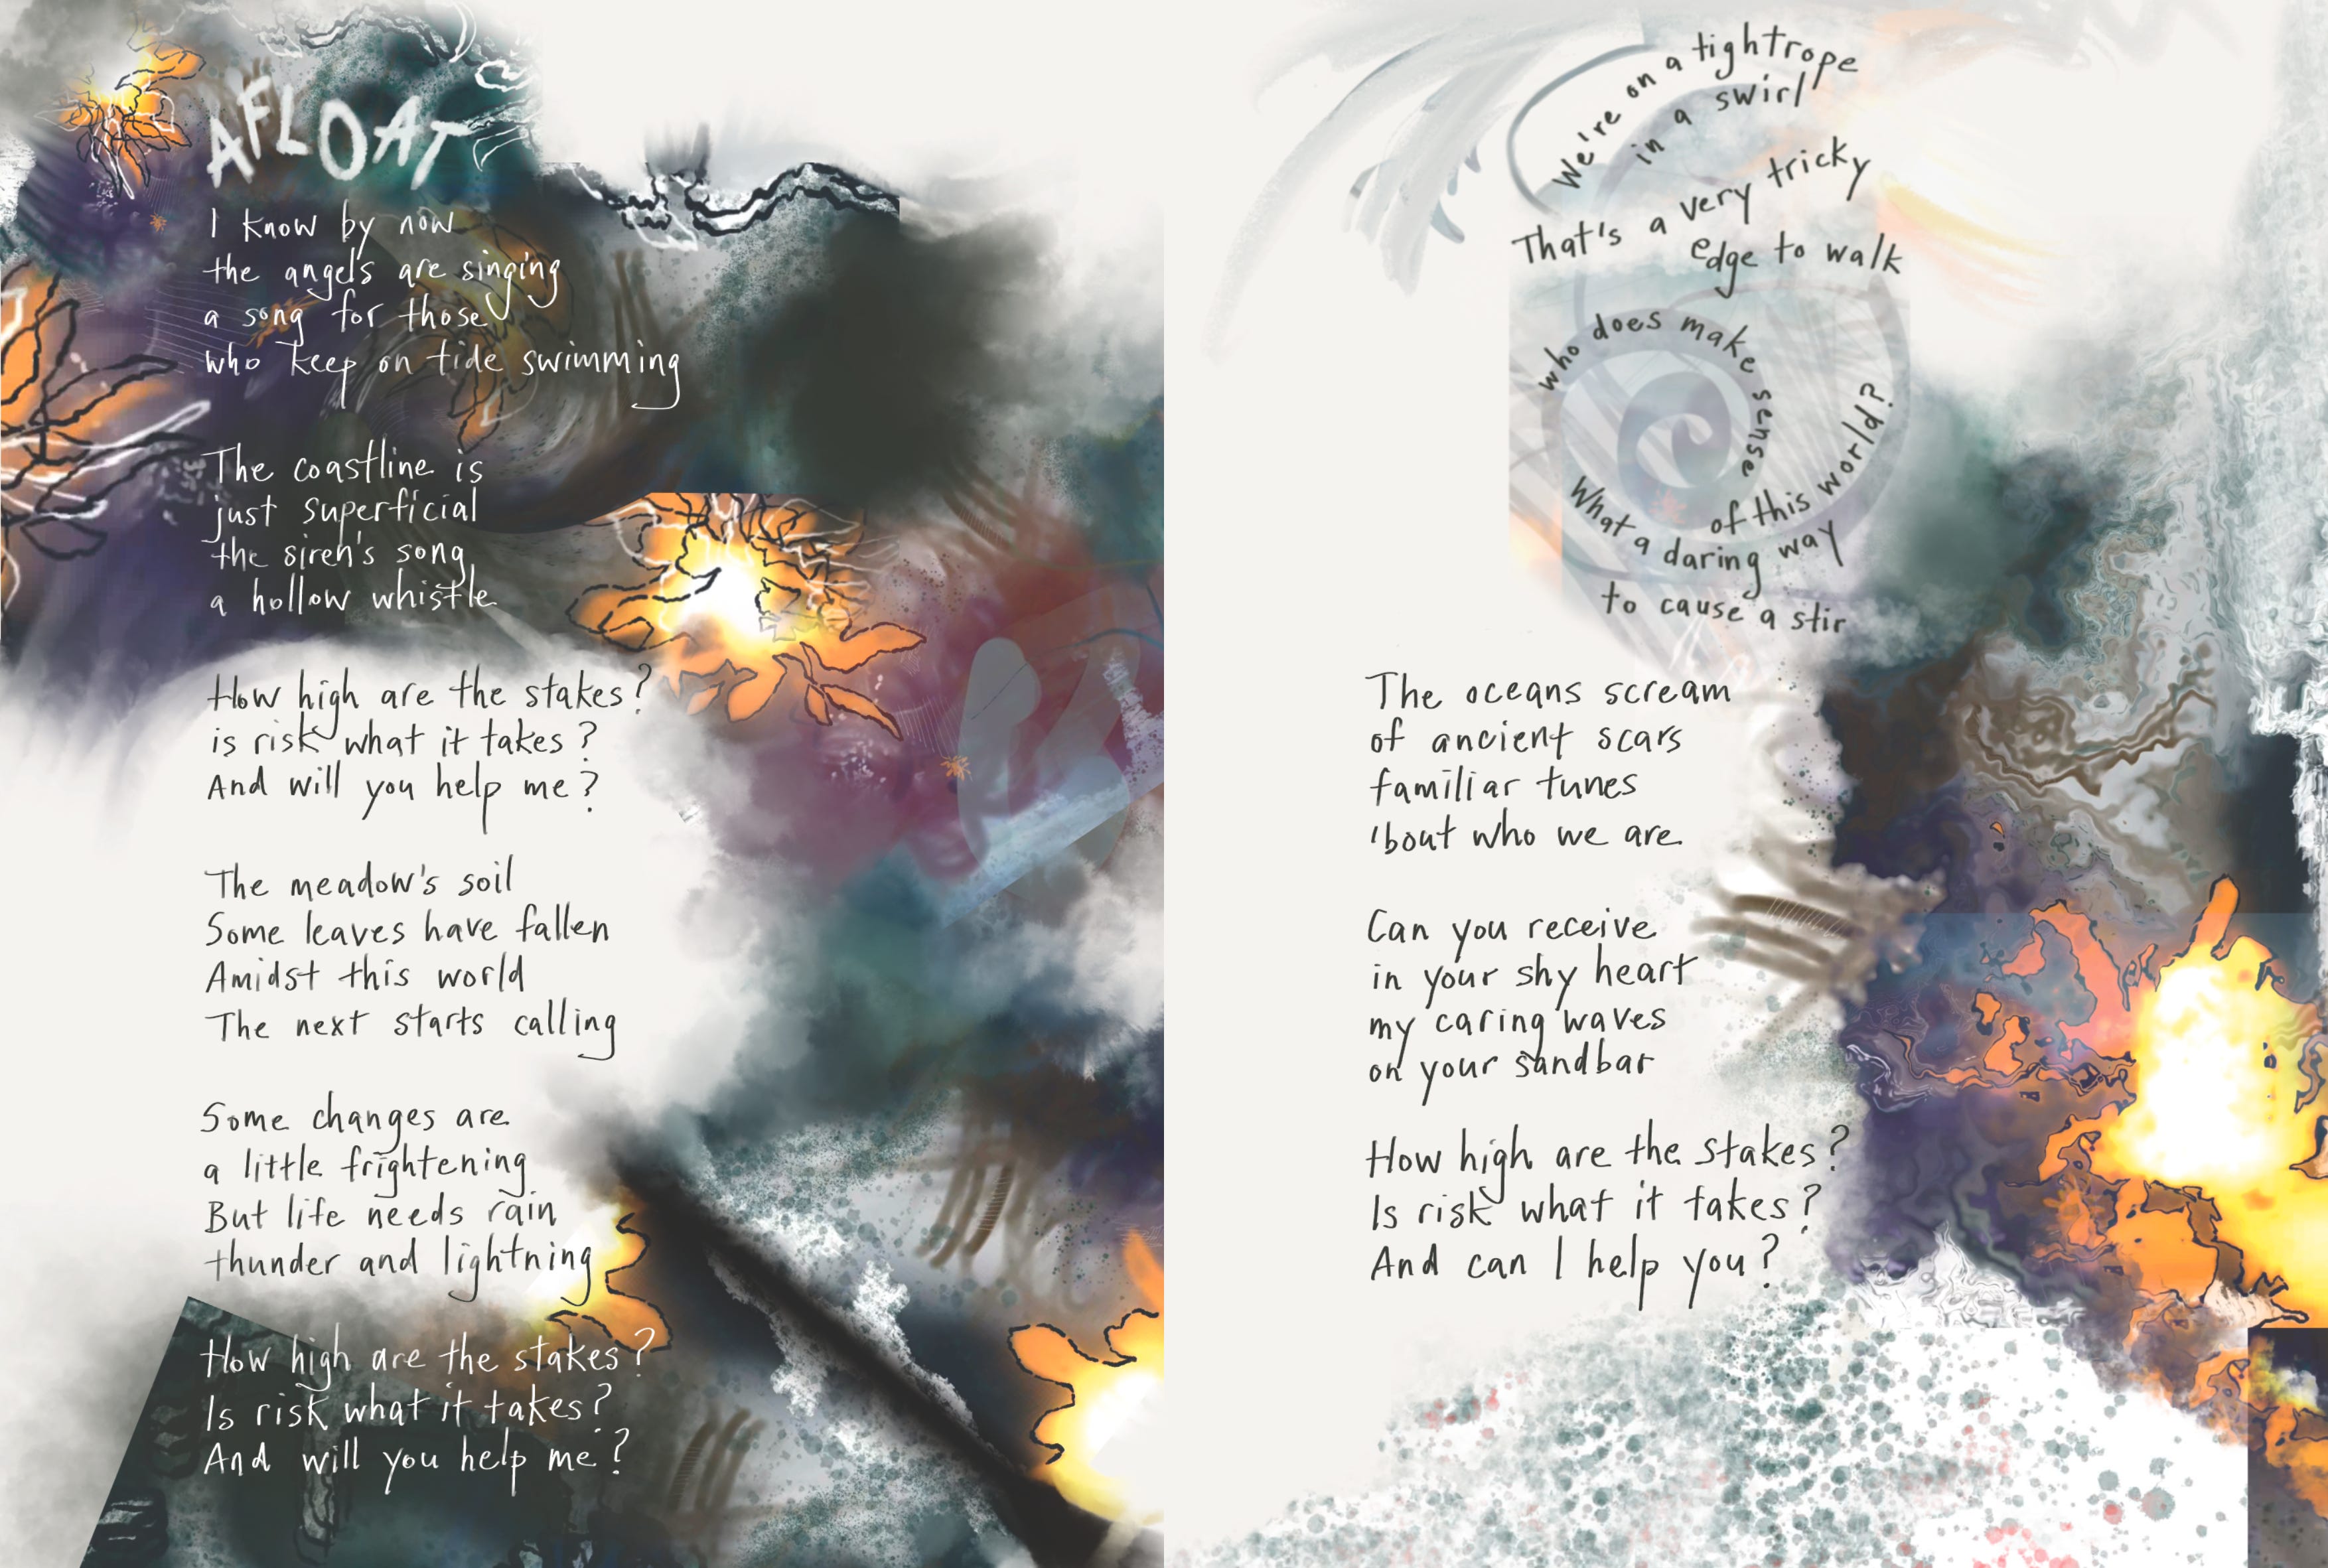 AFLOAT
I know by now
the angels are singing
a song for those
who keep on tide swimming
The coastline is
just superficial
the siren's song
a hollow whistle
How high are the stakes?
is risk what it takes?
And will you help me?
The meadow's soil
Some leaves have fallen
Amidst this world
The next starts calling
Some changes are
a little frightening
But life needs rain
thunder and lightning
How high are the stakes?
Is risk what it takes?
And will you help me?
We're on a tightrope
in a swirl
That's a very tricky
edge to walk
who does make sense
of this world?
What a daring way
to cause a stir
The oceans scream
of ancient scars
familiar tunes
'bout who we are
Can you receive
in your shy heart
my caring waves
on your sandbar
How high are the stakes?
Is risk what it takes?
And can I help you?